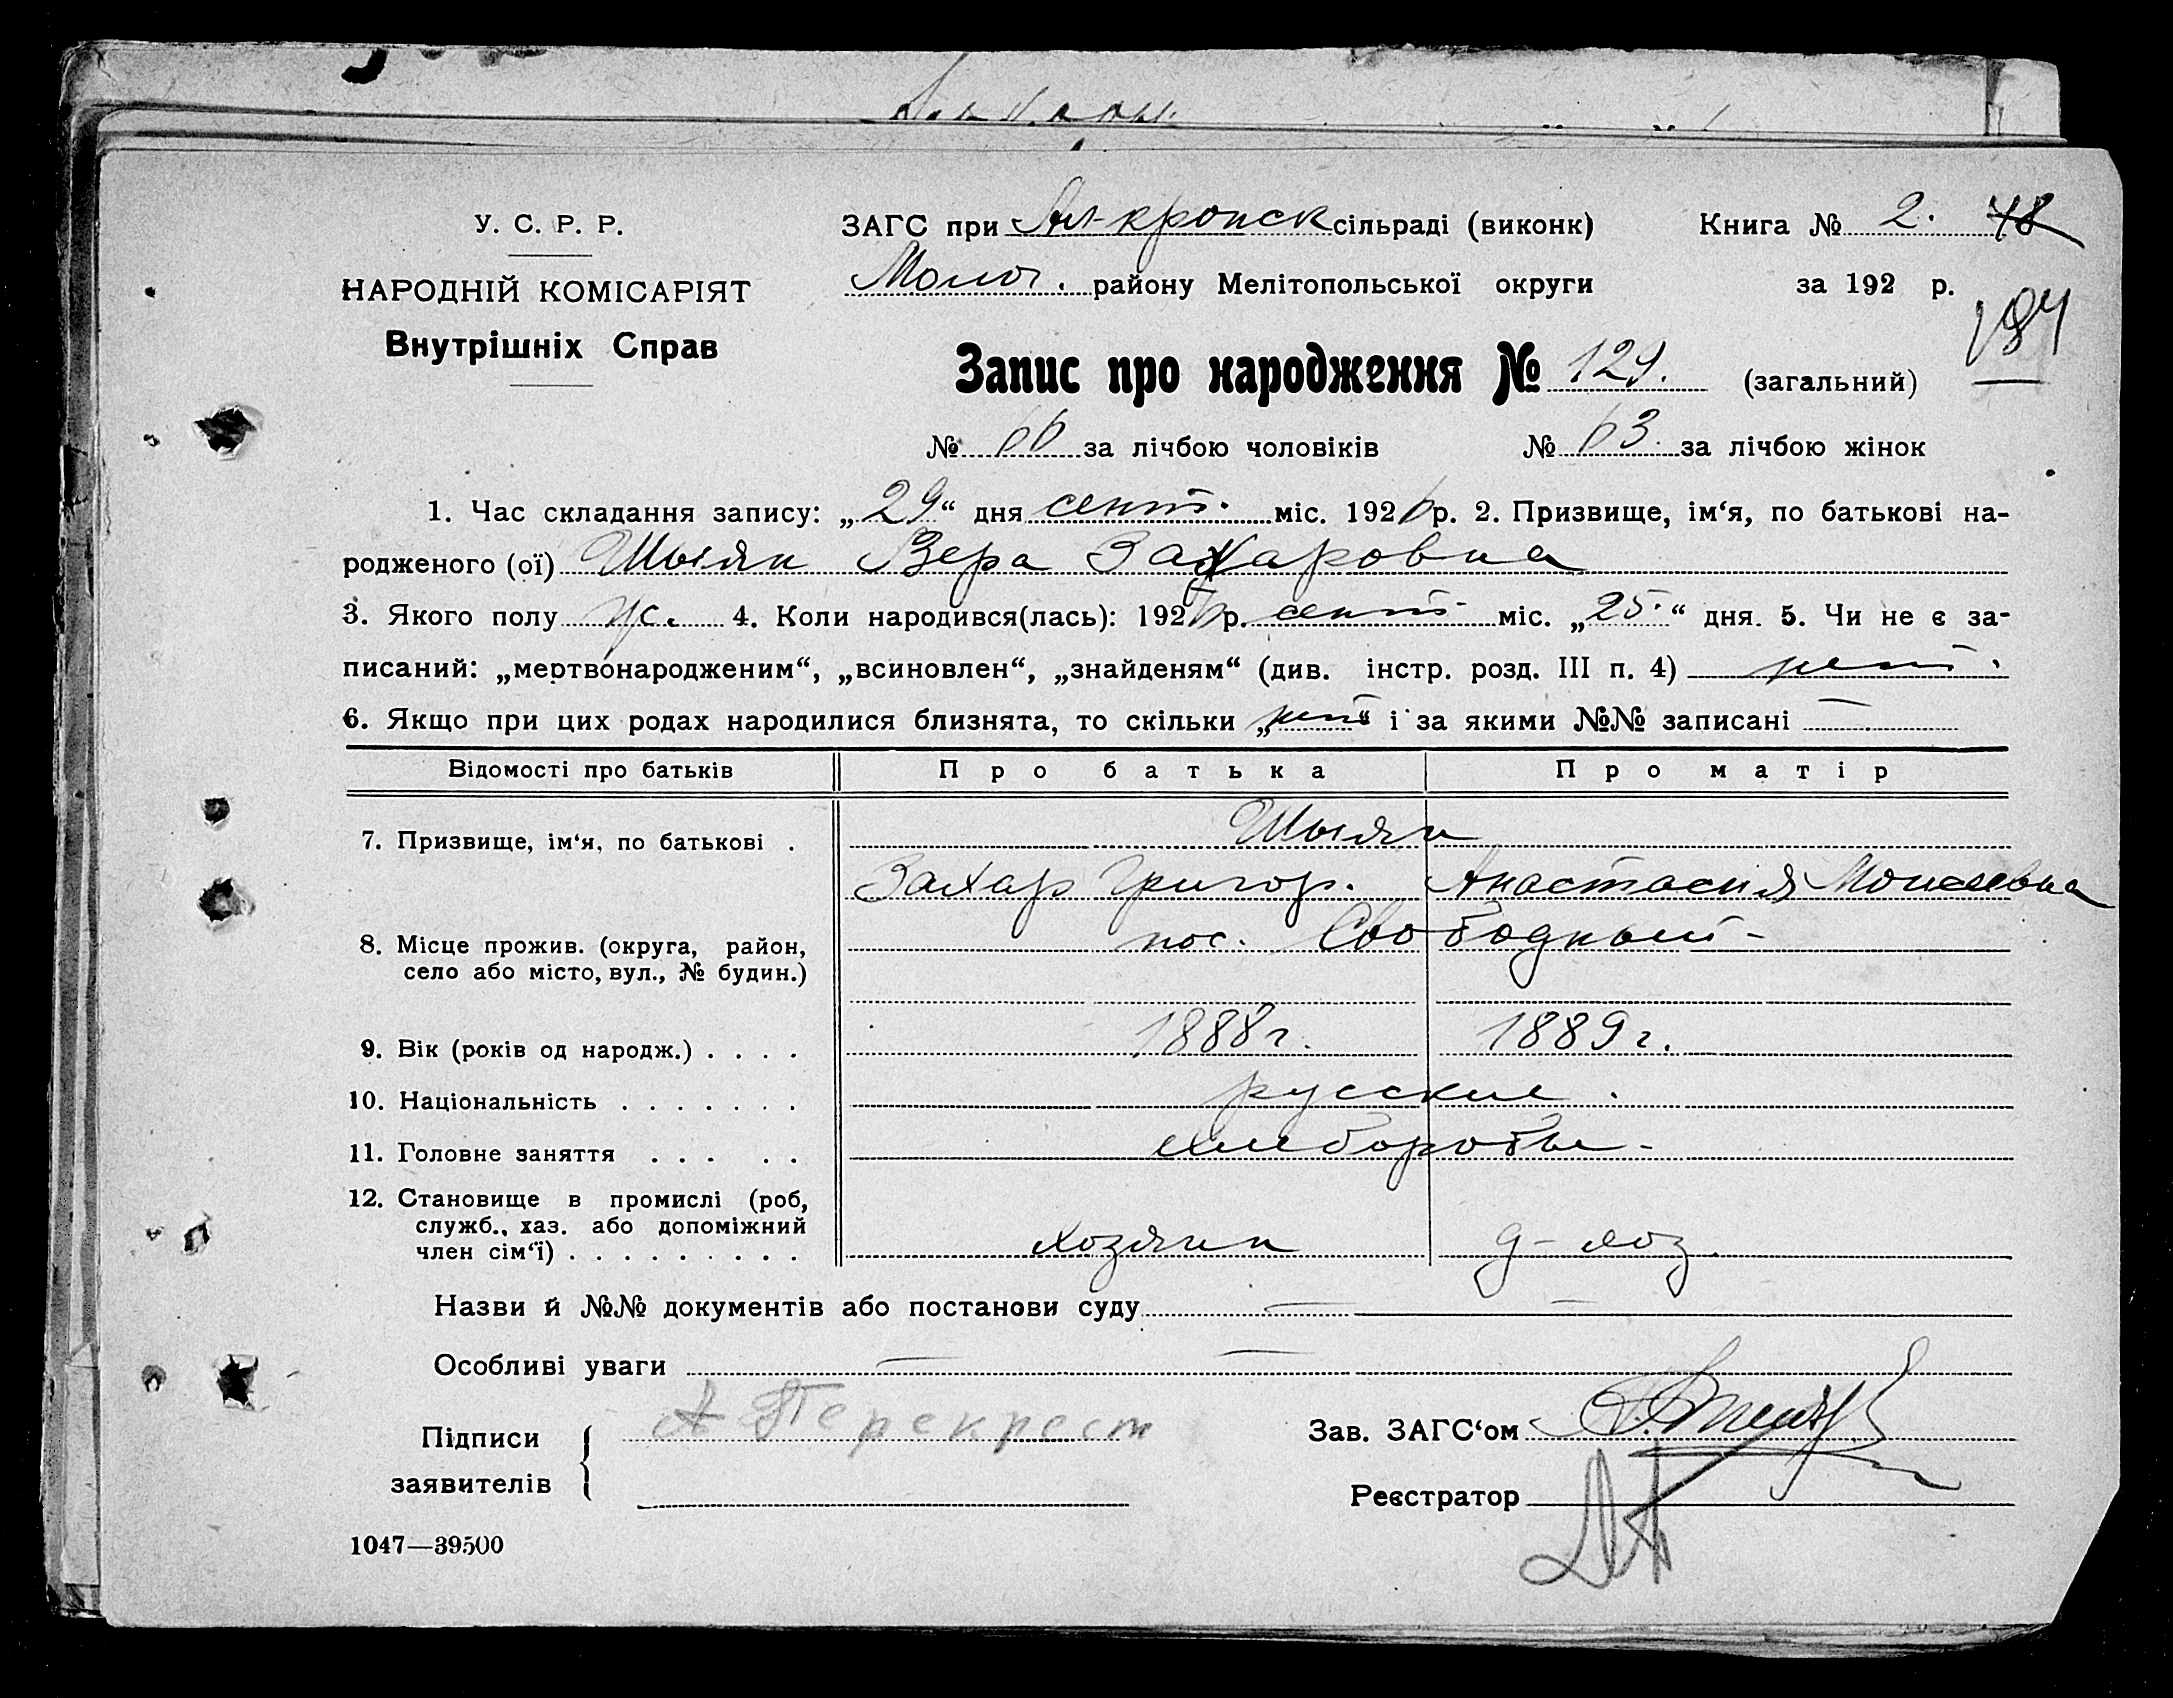 У. С. Р. Р.
НАРОДНІЙ КОМІСАРІЯТ
Внутрішніх Справ
ЗАГС при Ал-кропск сільраді (виконк) Книга № 2. 48
Молоч. району Мелітопольської округи за 192 р.
184
Запис про народження № 129. (загальний)
№ 66 за лічбою чоловіків № 63. за лічбою жінок
1. Час складання запису: „29“ дня сент. міс. 1926 р. 2. Призвище, ім‘я, по батькові на-
родженого (ої) Шыян Вера Захаровна
3. Якого полу ж. 4. Коли народився(лась): 1926 р. сент міс. „25.“ дня. 5. Чи не є за-
писаний: „мертвонародженим“, „всиновлен“, „знайденям“ (див. інстр. розд. III п. 4) нет.
6. Якщо при цих родах народилися близнята, то скільки „нет“ і за якими №№ записані —
Відомості про батьків Про батька Про матір
7. Призвище, ім‘я, по батькові . Шыян
Захар Григор. Анастасия Моисеевна
8. Місце прожив. (округа, район, пос. Свободный-
село або місто, вул., № будин.)
9. Вік (років од народж.) . . . . 1888г. 1889г.
10. Національність . . . . . . . русские.
11. Головне заняття . . . . . хлеборобы-
12. Становище в промислі (роб,
служб., хаз. або допоміжний
член сім‘ї) . . . . . . . . . хозяин д-хоз
Назви й №№ документів або постанови суду — —
Особливі уваги — —
Підписи А Перекрест
заявителів
Зав. ЗАГС‘ом
Реєстратор
1047—39500